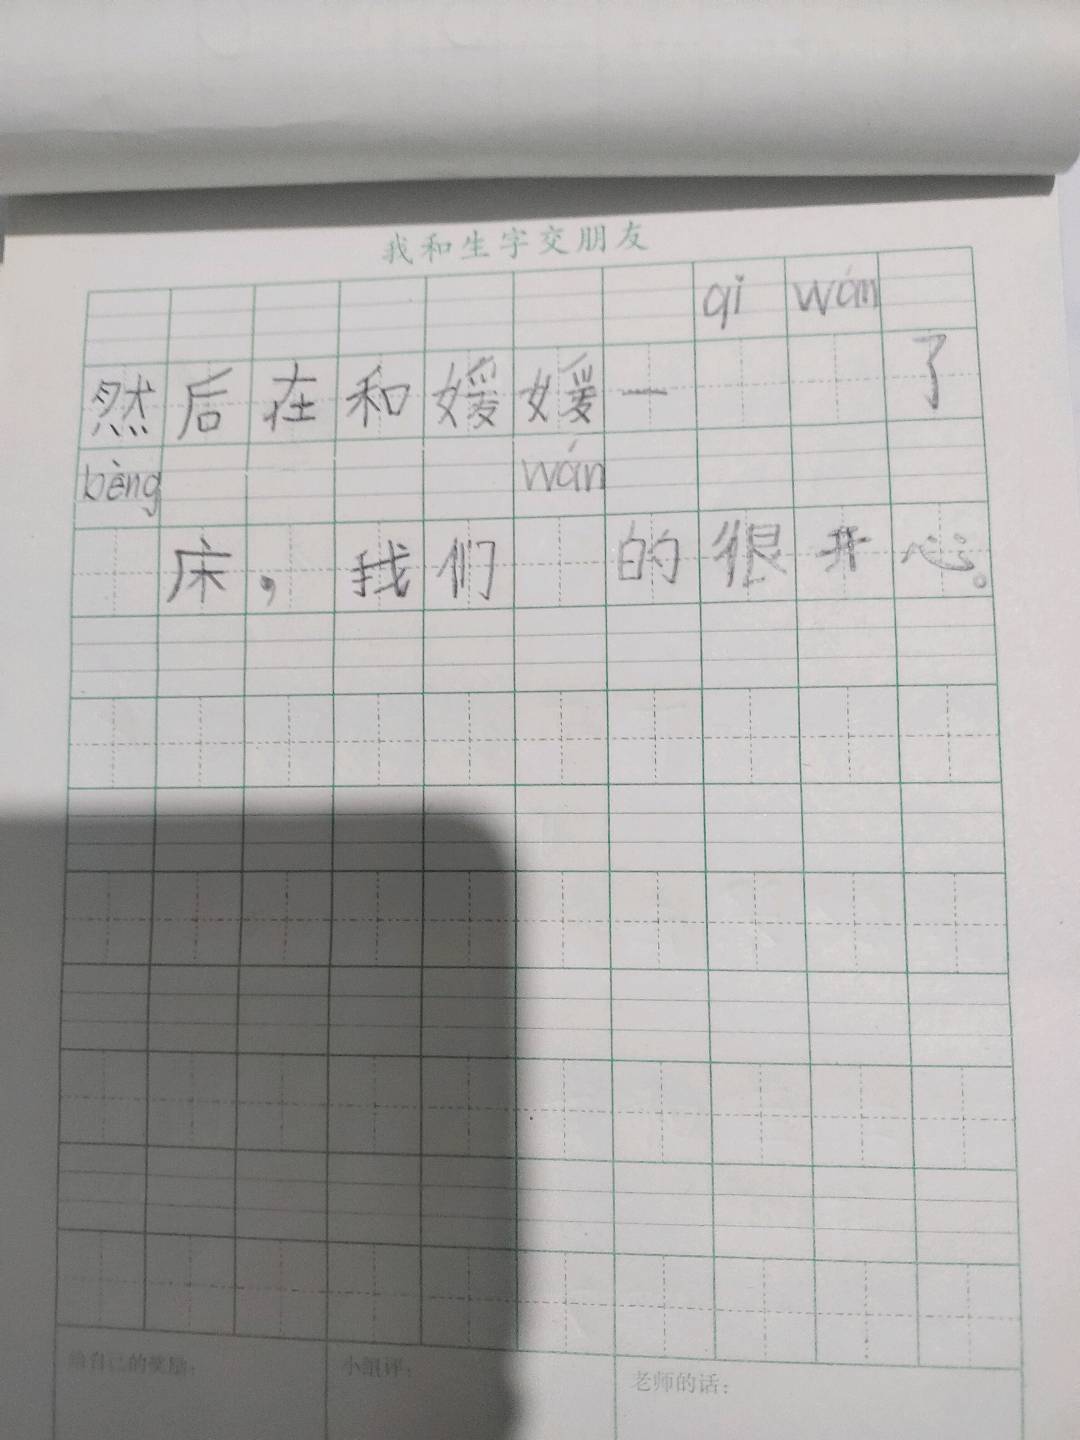 我和生字交朋友
qi wán
然后在和媛媛一 了
bèng wán
床，我们 的很开心。
给自己的奖励：
小组评：
老师的话：